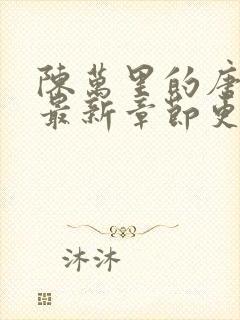 陳萬里的唐
最新章節更
沐沐